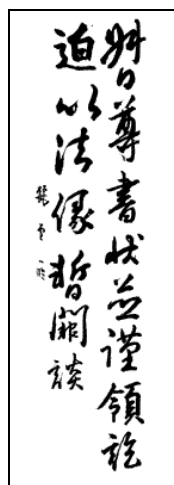 日尊書狀並謹領訖
迫以法緣暫闕談